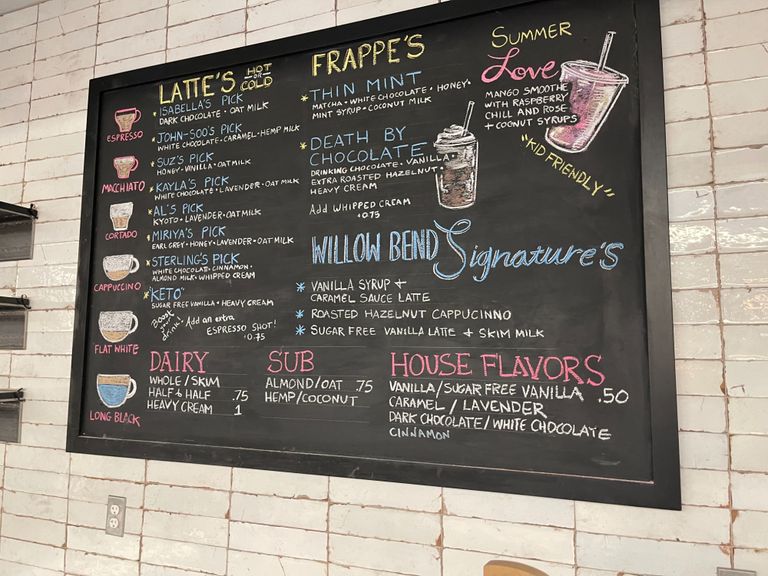 LATTE'S HOT OR COLD
ISABELLA'S PICK
DARK CHOCOLATE • OAT MILK
JOHN-SOO'S PICK
WHITE CHOCOLATE • CARAMEL • HEMP MILK
SUZ'S PICK
HONEY • VANILLA • OAT MILK
KAYLA'S PICK
WHITE CHOCOLATE • LAVENDER • OAT MILK
AL'S PICK
KYOTO • LAVENDER • OAT MILK
MIRIYA'S PICK
EARL GREY • HONEY • LAVENDER • OAT MILK
STERLING'S PICK
WHITE CHOCOLATE • CINNAMON •
ALMOND MILK • WHIPPED CREAM
"KETO"
SUGAR FREE VANILLA • HEAVY CREAM
Boost your drink! Add an extra
ESPRESSO SHOT!
0.75
ESPRESSO
MACCHIATO
CORTADO
CAPPUCCINO
FLAT WHITE
LONG BLACK
FRAPPE'S
THIN MINT
MATCHA • WHITE CHOCOLATE • HONEY •
MINT SYRUP • COCONUT MILK
DEATH BY
CHOCOLATE
DRINKING CHOCOLATE • VANILLA •
EXTRA ROASTED HAZELNUT •
HEAVY CREAM
Add WHIPPED CREAM
0.75
SUMMER
Love
MANGO SMOOTHE
WITH RASPBERRY
CHILL AND ROSE
+ COONUT SYRUPS
"KID FRIENDLY"
WILLOW BEND Signature's
* VANILLA SYRUP +
CARAMEL SAUCE LATTE
* ROASTED HAZELNUT CAPPUCINNO
* SUGAR FREE VANILLA LATTE + SKIM MILK
DAIRY
WHOLE / SKIM
HALF & HALF .75
HEAVY CREAM 1
SUB
ALMOND/OAT .75
HEMP/COCONUT
HOUSE FLAVORS
VANILLA/SUGAR FREE VANILLA .50
CARAMEL / LAVENDER
DARK CHOCOLATE/WHITE CHOCOLATE
CINNAMON